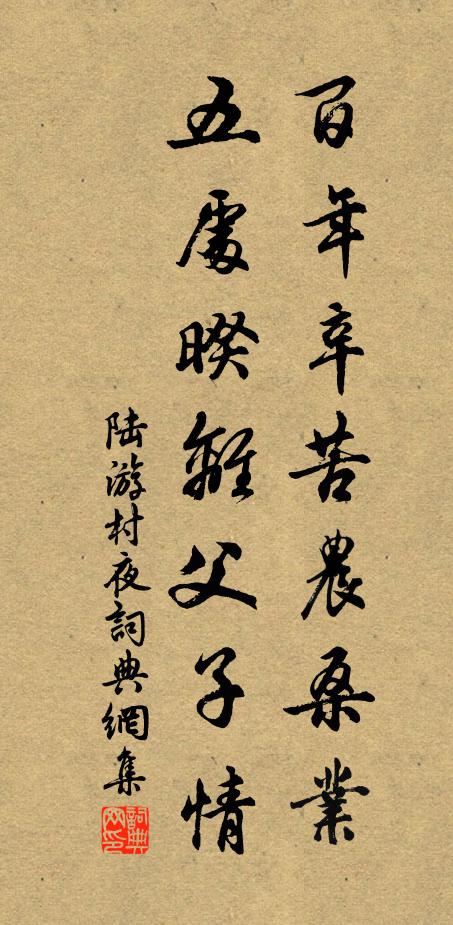 百年辛苦農桑業
五處暌離父子情
陆游村夜詞典網集
詞典網印